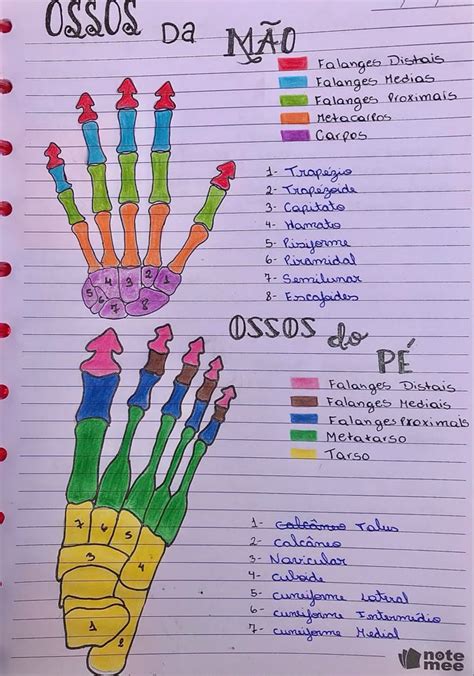 OSSOS DA MÃO
Falanges Distais
Falanges Medias
Falanges Proximais
Metacarpos
Carpos
1- Trapézio
2- Trapézoide
3- Capitato
4- Hamato
5- Pisiforme
6- Piramidal
7- Semilunar
8- Escafoides
4 3 2 1
5 6 7 8
OSSOS do PÉ
Falanges Distais
Falanges Mediais
Falanges Proximais
Metatarso
Tarso
7 6 5
3 4
1 2
1- calcâneo Talus
2- calcâneo
3- Navicular
4- cuboide
5- cuneiforme Lateral
6- cuneiforme Intermédio
7- cuneiforme Medial
note
mee